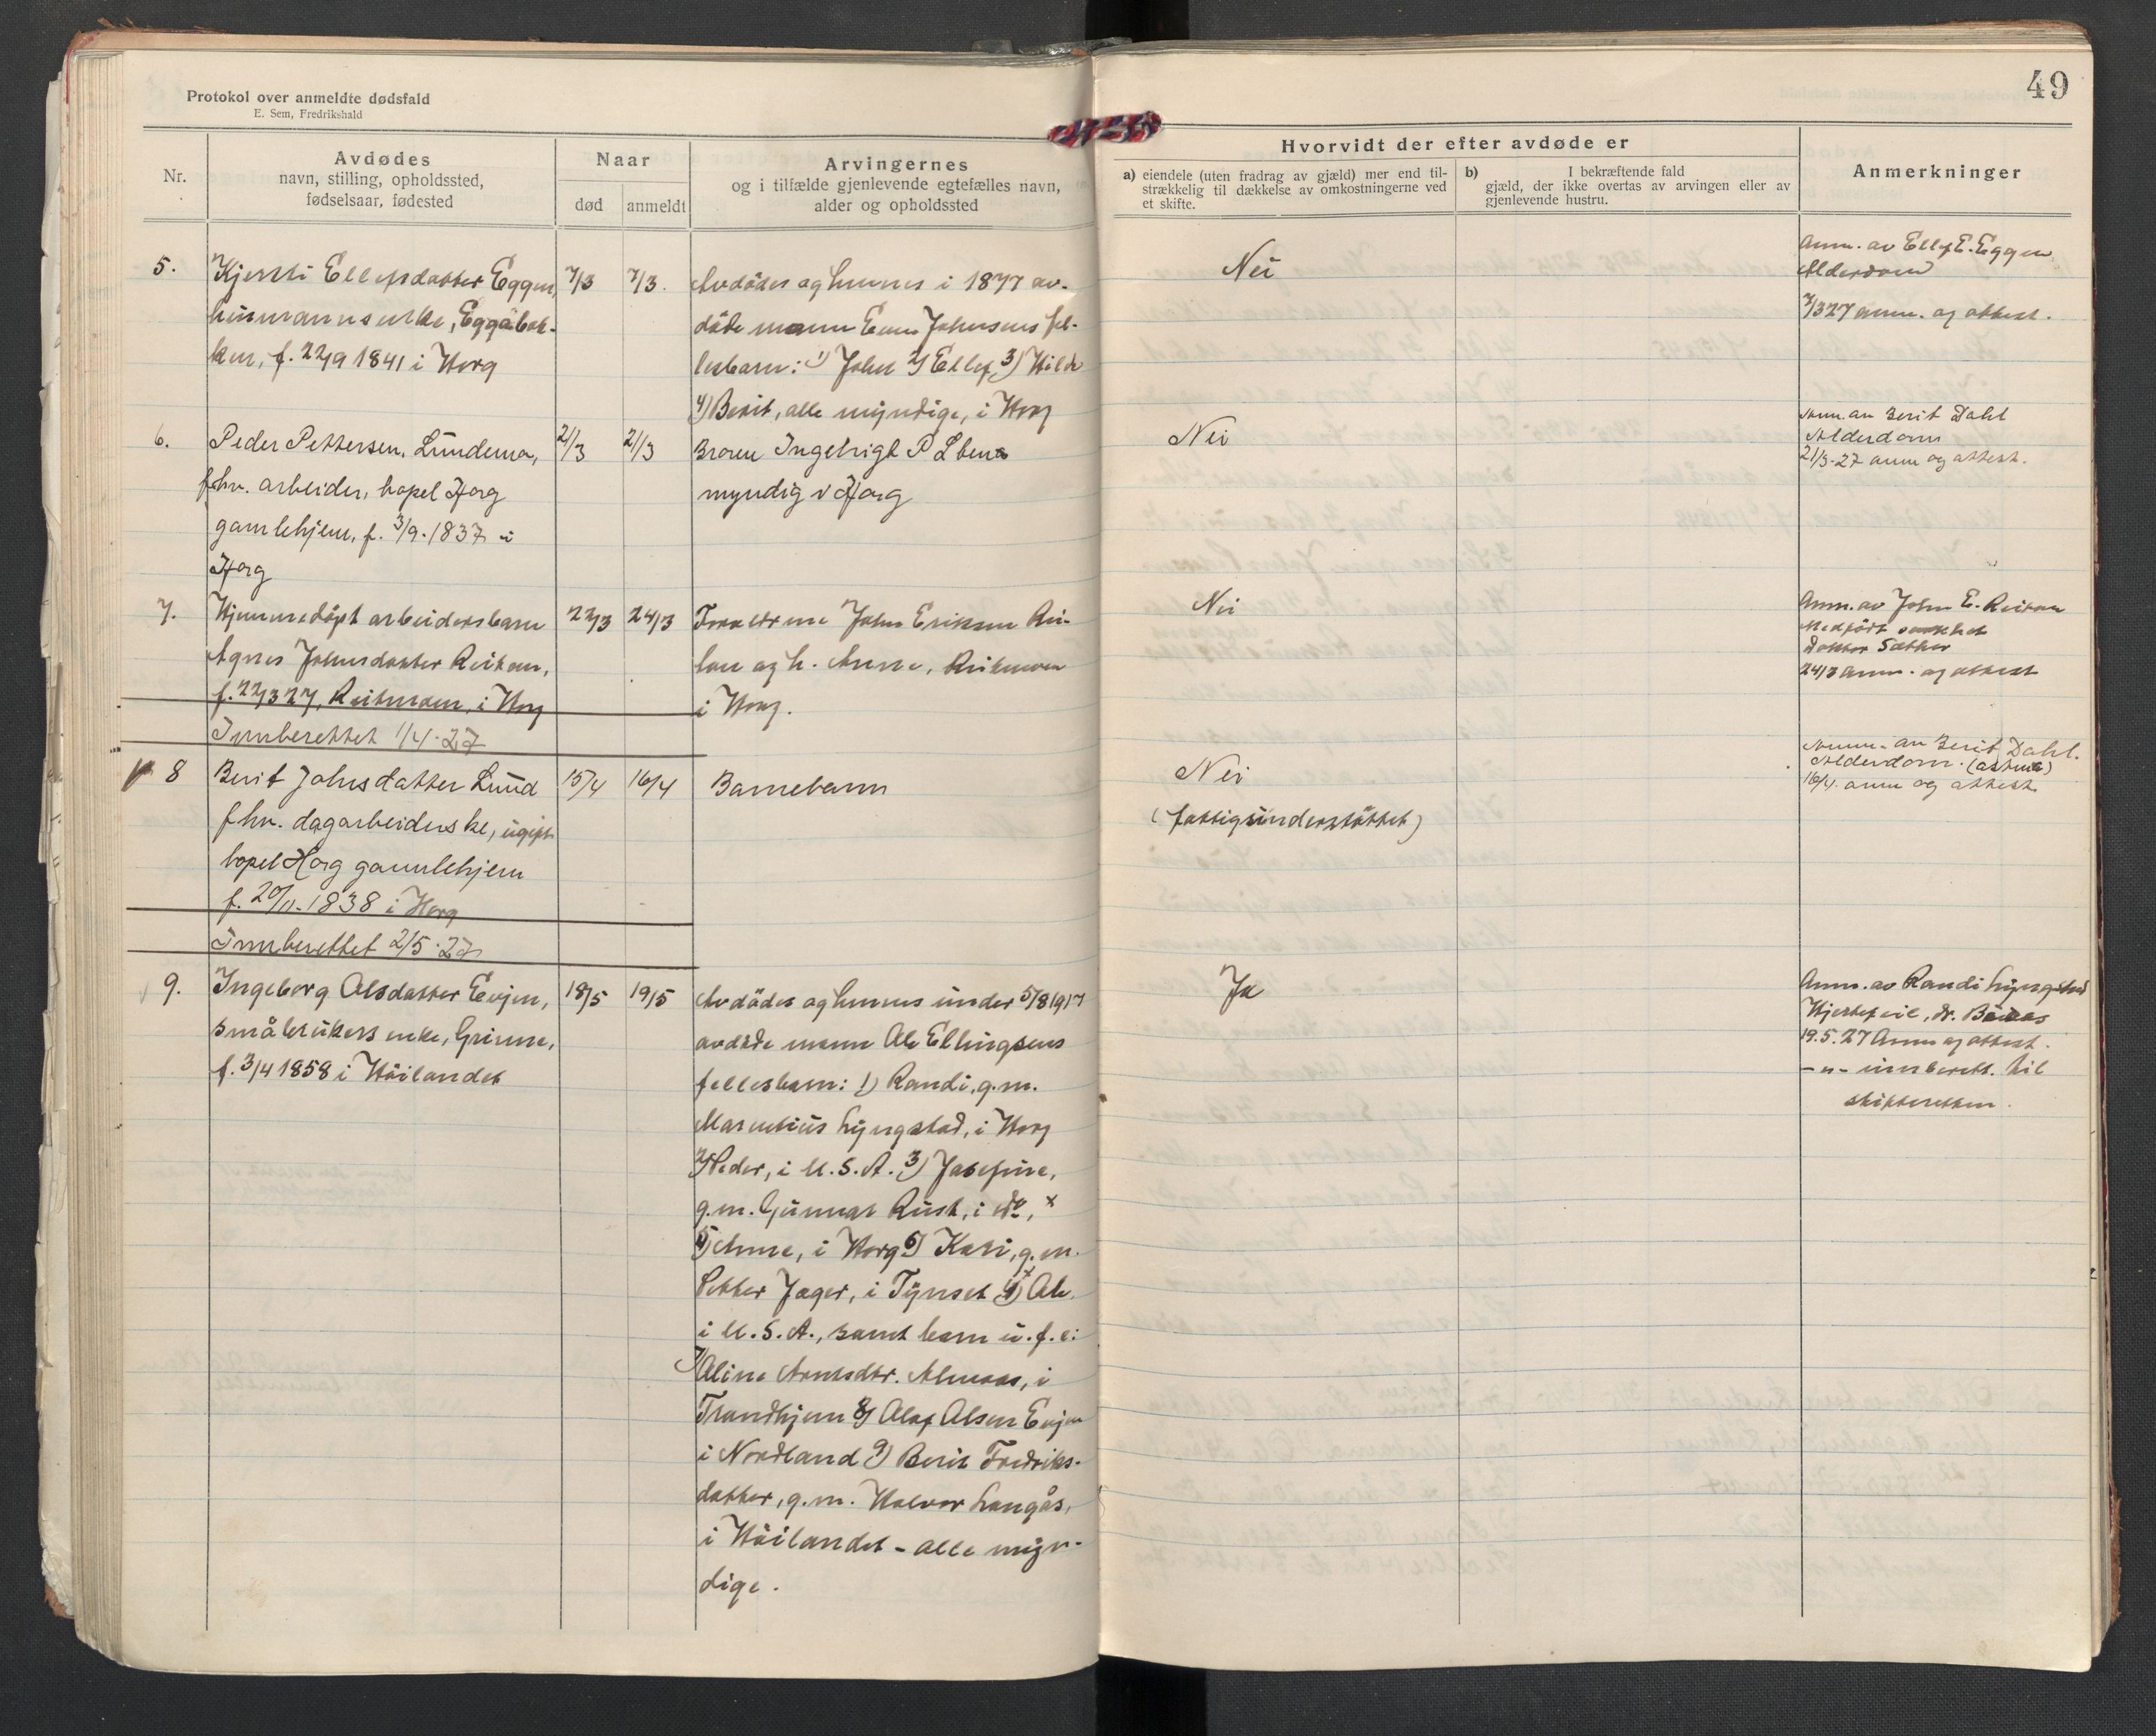 49
Protokol over anmeldte dødsfald
E. Sem, Fredrikshald
Nr.
Avdødes
navn, stilling, opholdssted,
fødselsaar, fødested
Naar
død
anmeldt
Arvingernes
og i tilfælde gjenlevende egtefælles navn,
alder og opholdssted
Hvorvidt der efter avdøde er
a) eiendele (uten fradrag av gjæld) mer end til-
strækkelig til dækkelse av omkostningerne ved
et skifte.
b) I bekræftende fald
gjæld, der ikke overtas av arvingen eller av
gjenlevende hustru.
Anmerkninger
5.
Kjersti Ellefsdatter Eggen,
husmannsenke, Eggabak-
ken, f. 22/9 1841 i Horg
7/3
7/3.
Avdødes og hennes i 1877 av-
døde mann Enen Johnsens fel-
lesbarn: 1) John 2) Ellef, 3) Hilde
4) Berit, alle myndige, i Horg
Nei
Anm. av Ellef E. Eggen
Alderdom
7/3 27 anm. og attest.
6.
Peder Pettersen, Lundemo,
fhv. arbeider, bopel Horg
gamlehjem, f. 3/9. 1837 i
Horg
21/3
21/3
Broren Ingebrigt P
myndig i Horg
Nei
Anm. av Berit Dahl
Alderdom
21/3-27 anm og attest.
7.
Hjemmedøpt arbeidersbarn
Agnes Johnsdatter Reitan,
f. 22/3 27, Reitmoen, i Horg
22/3
24/3
Foreldrene John Eriksen Rei-
tan og h. Anne, Reitmoen
i Horg.
Nei
Anm. av John E. Reitan
Medfødt svakhet
Doktor Sæther
24/3 anm. og attest
Innberettet 1/4-27
8
Berit Johnsdatter Lund
fhv. dagarbeiderske, ugift
bopel Horg gamlehjem
f. 20/11-1838 i Horg
15/4
16/4
Barnebarn
Nei
(fattigunderstøttet)
Anm. av Berit Dahl.
Alderdom. (astma)
16/4. anm og attest
Innberettet 2/5-27
9.
Ingeborg Olsdatter Evjen,
småbrukers enke, Grinne,
f. 3/4 1858 i Høilandet
18/5
19/5
Avdødes og hennes under 5/8 1917
avdøde mann Ole Ellingsens
fellesbarn: 1) Randi, g.m.
Marentius Lyngstad, i Horg
2) Peder, i U.S.A. 3) Josefine,
g.m. Gunnar Rust, i do, x
5) Anne, i Horg 6) Kari, g.m.
Petter Jager, i Tynset x 4) Ole
i U.S.A., samt barn u.f.e:
7) Oline Arntsdtr. Almaas, i
Trondhjem 8) Olaf Olsen Evjen
i Nordland 9) Berit Fredriks-
datter, g.m. Halvor Langås,
i Høilandet - alle myn-
dige.
Ja
Anm. av Randi Lyngstad
Hjertefeil, dr.
19.5.27 Anm og attest.
-"- innberett. til
skifteretten.